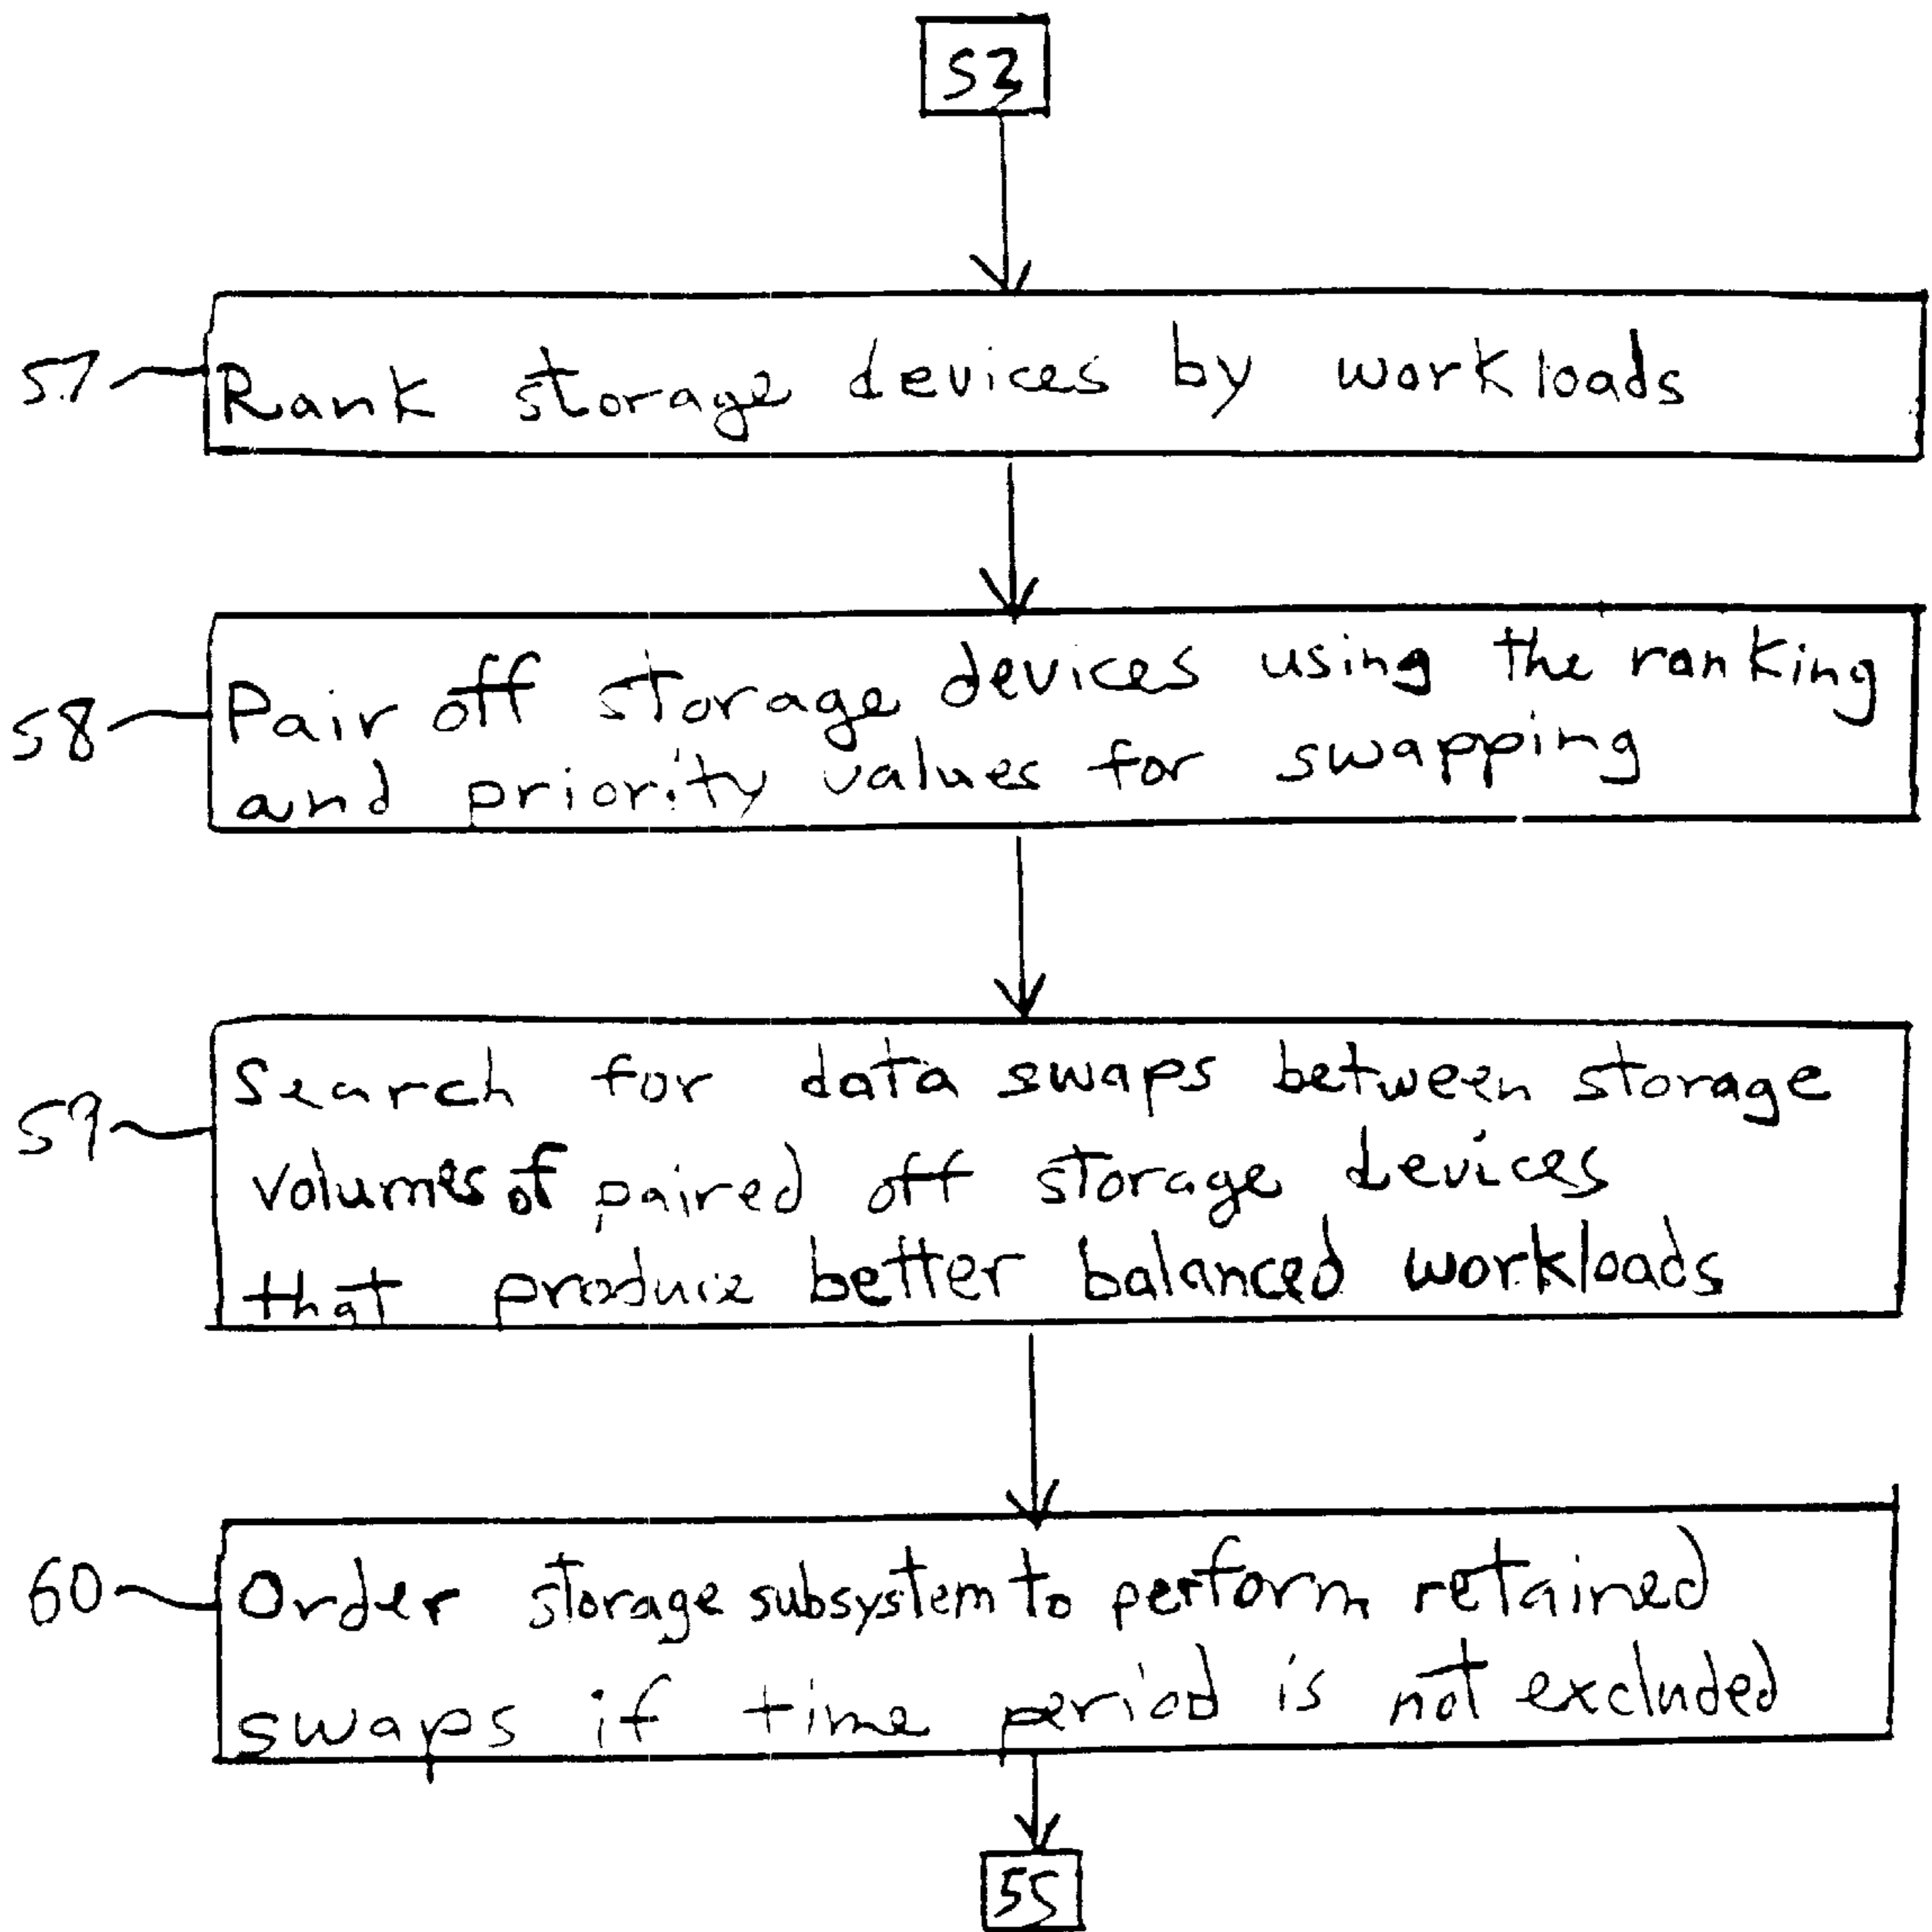 53
57
Rank storage devices by workloads
58
Pair off storage devices using the ranking
and priority values for swapping
59
Search for data swaps between storage
volumes of paired off storage devices
that produce better balanced workloads
60
Order storage subsystem to perform retained
swaps if time period is not excluded
55